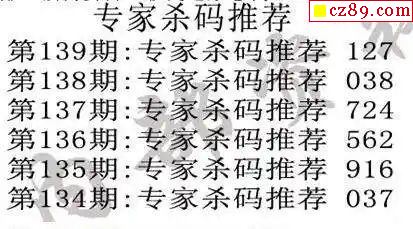 cz89.com
专家杀码推荐
第139期:专家杀码推荐 127
第138期:专家杀码推荐 038
第137期:专家杀码推荐 724
第136期:专家杀码推荐 562
第135期:专家杀码推荐 916
第134期:专家杀码推荐 037